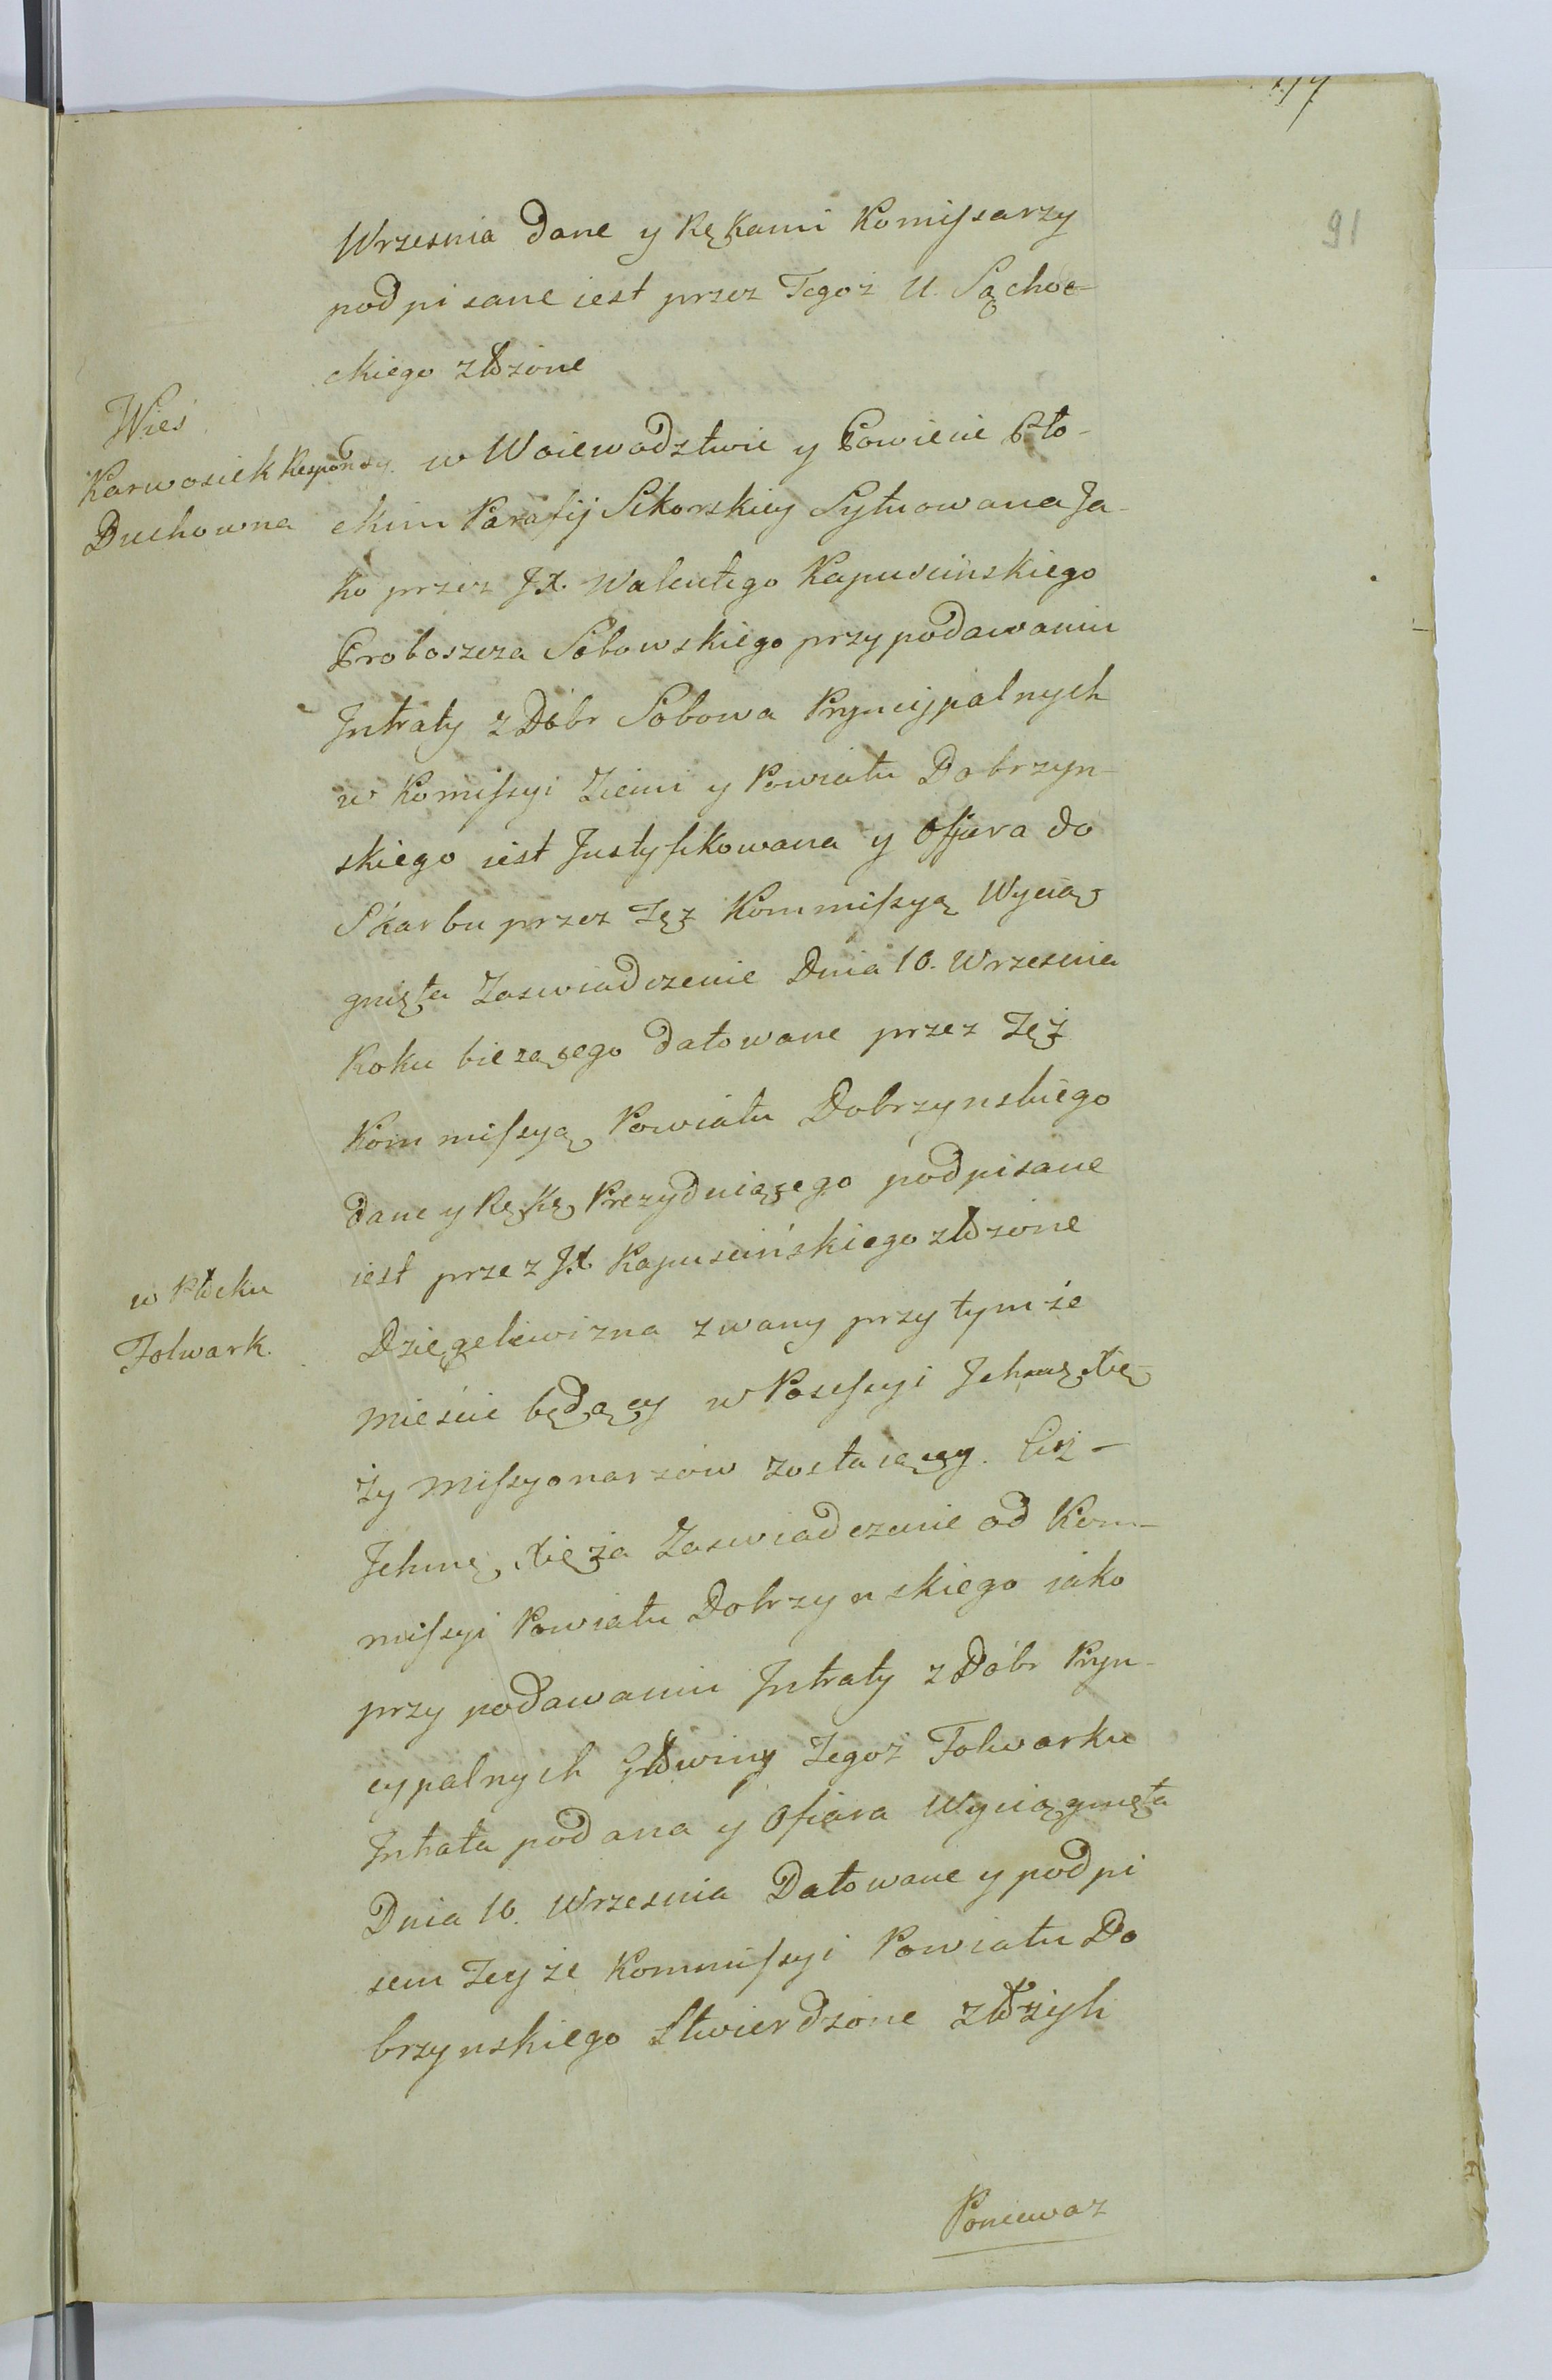 91
Wrzesnia dane y Rękami Komissarzy
podpisane iest przez Tegoż U. Sącho-
ckiego złożone
Wieś
Karwosiek
Duchowna
w Woiewodztwie y Powiecie Pło-
ckim Parafij Sikorskiey Sytuowana Ja-
ko przez JX. Walentego Kapuscińskiego
Proboszcza Sobowskiego przy podawaniu
Intraty z Dóbr Sobowa Pryncypalnych
w Komissyi Ziemi y Powiatu Dobrzyn-
skiego iest Justyfikowana y Offiara do
Skarbu przez Tęż Kommissyą Wycią-
gnięta Zaswiadczenie Dnia 10. Wrzesnia
Roku bieżącego datowane przez Tęż
Kommissyą Powiatu Dobrzynskiego
dane y Ręką Prezyduiącego podpisane
iest przez JX Kapuscińskiego złożone
w Płocku
Folwark.
Dzięgelewizna zwany przy tymże
mieście będący w Possessyi Ichmę Xię
ży Missyonarzow zostaiący. Ciż
Ichmę Xięża Zaswiadczenie od Kom-
missyi Powiatu Dobrzynskiego iako
przy podawaniu Intraty z Dóbr Pryn-
cypalnych Głowiny Tegoż Folwarku
Intrata podana y Ofiara Wyciągnięta
Dnia 10. Wrzesnia Datowane y podpi
sem Teyże Kommissyi Powiatu Do
brzynskiego Stwierdzone złożyli
Poniewaz